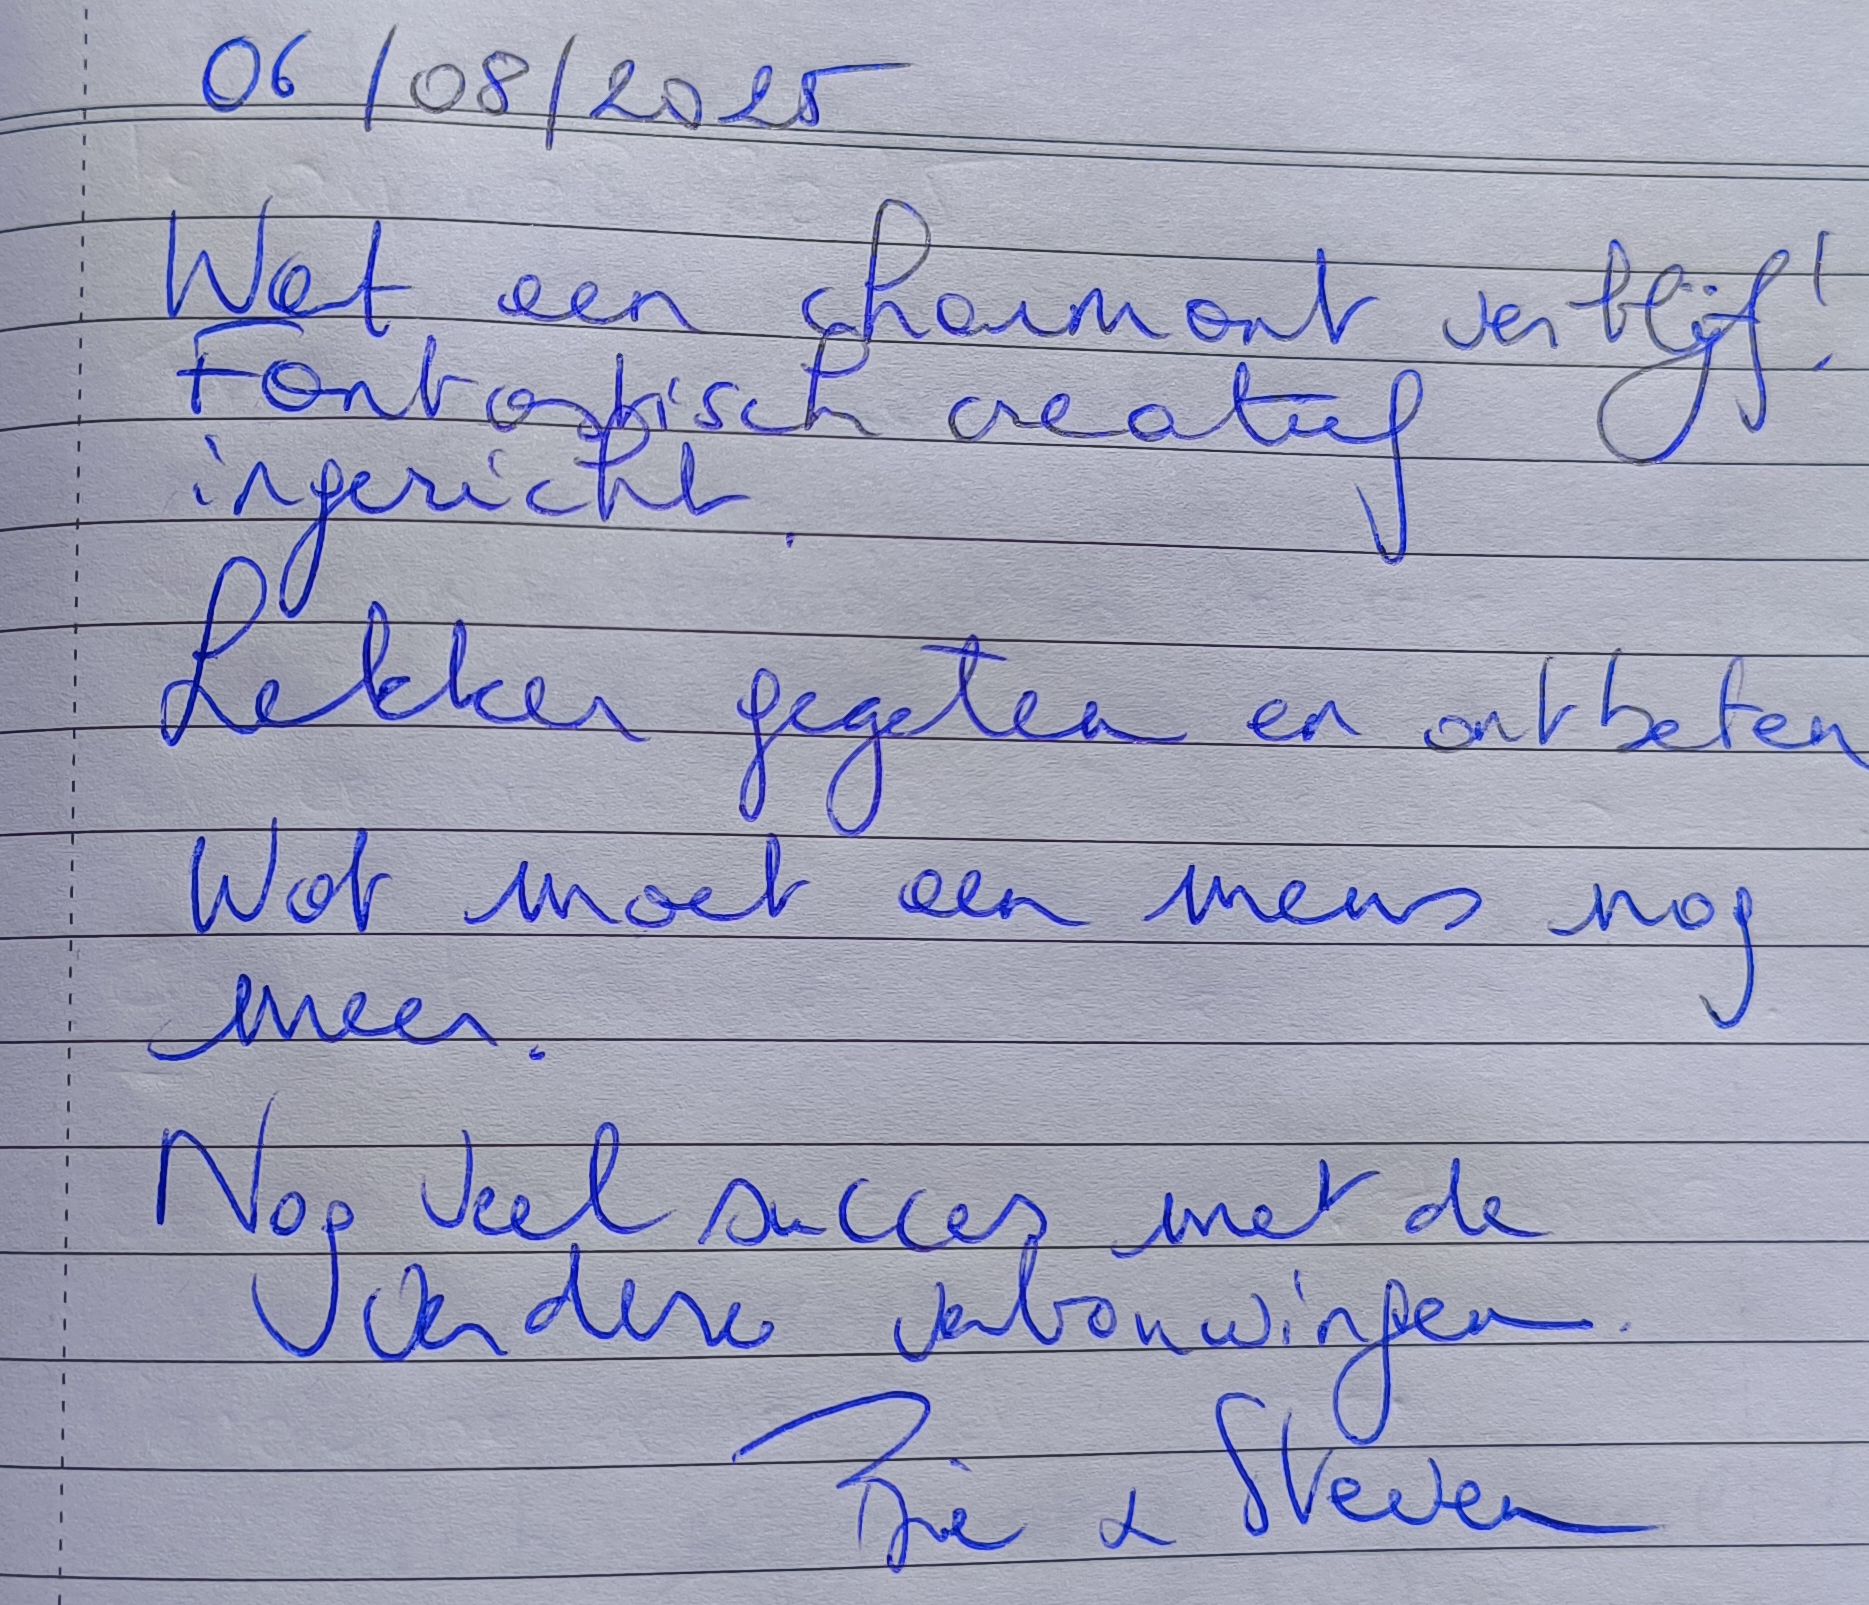 06/08/2025
Wat een charmant verblijf!
Fantastisch creatief
ingericht.
Lekker gegeten en ontbeten
Wat moet een mens nog
meer.
Nog veel succes met de
verdere verbouwingen.
& Steven